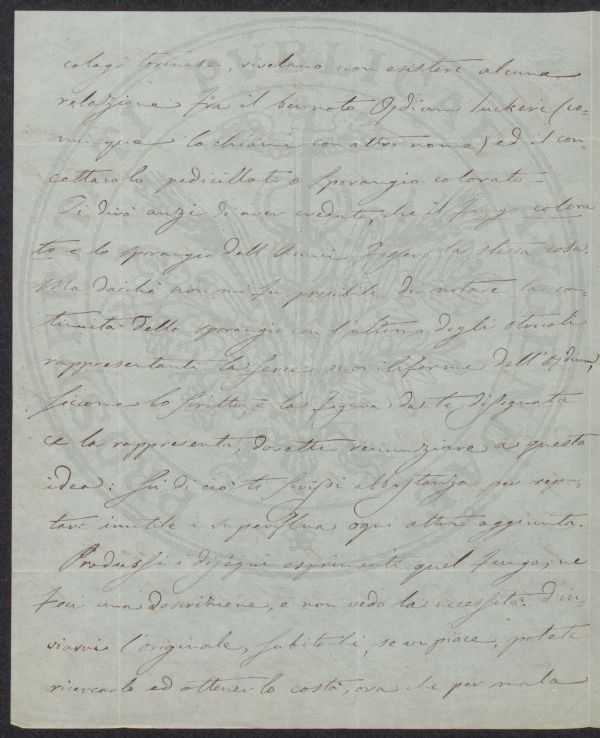 cologo torinese, rivelano non esistere alcuna
relazione fra il bennoto Ojdium tuckeri (co-
munque lo chiami con altro nome) ed il con-
cettacolo pedicillato o sporangio colorato -
Ti dirò anzi di aver creduto, che il fungo colora
to e lo sporangio dell'Amici fossero la stessa cosa.
Ma dacchè non mi fu possibile di notare la con-
tinuità dello sporangio con l'ultimo degli otricoli
rappresentanti la serie moniliforme dell'Ojdium,
siccome lo scritto, e la figura da te disegnata
ce la rappresenta, dovetti renunziare a questa
idea: Su di ciò ti scrissi abbastanza per repu-
tare inutile e superflua ogni altra aggiunta.
Produssi i disegni esprimenti quel fungo, ne
feci una descrizione, e non vedo la necessità d'in-
viarvi l'originale, subitochè, se vi piace, potete
ricercarlo ed ottenerlo costà, ora che per mala